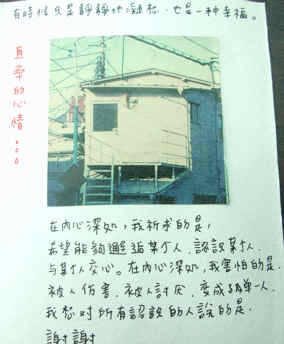 有時候只是靜靜地凝想,也是一种幸福。
直率的心情:。。
在內心深処,我祈求的是,
希望能夠邂逅某个人,認識某个人.
与某个人交心。在內心深処,我害怕的是.
被人伤害.被人討厌.変成孤単一人.
我想对所有認識的人說的是.
謝謝